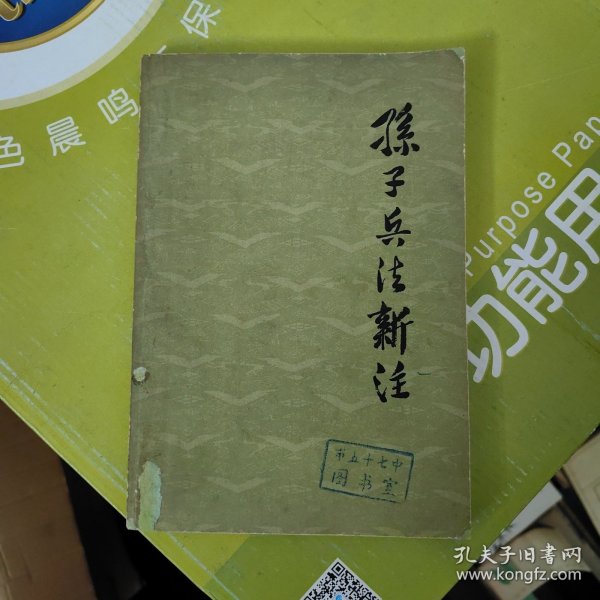 孫子兵法新注
市五十七中
图书室
色晨鸣
保
Purpose Pap
功能用
孔夫子旧书网
www.kongfz.com